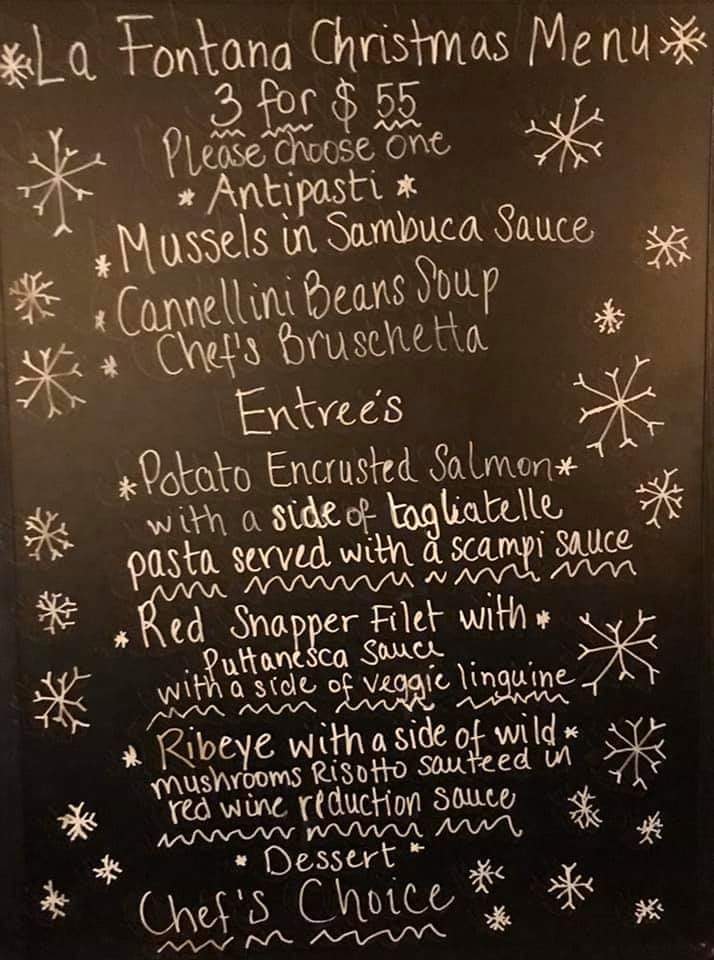 La Fontana Christmas Menu
3 for $55
Please choose one
* Antipasti *
* Mussels in Sambuca Sauce
* Cannellini Beans Soup
* Chef's Bruschetta
Entree's
* Potato Encrusted Salmon *
with a side of tagliatelle
pasta served with a scampi sauce
* Red Snapper Filet with *
Puttanesca Sauce
with a side of veggie linguine
* Ribeye with a side of wild *
mushrooms Risotto sauteed in
red wine reduction sauce
* Dessert *
Chef's Choice